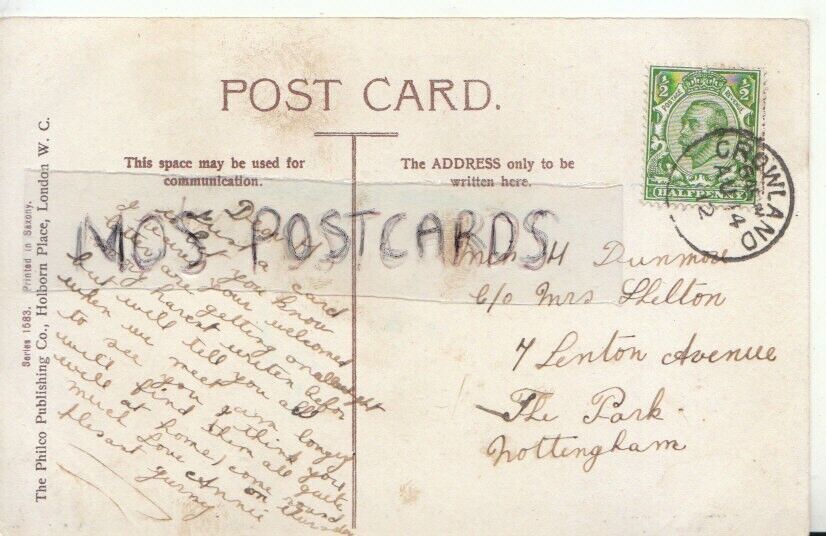 POST CARD.
This space may be used for
communication.
The ADDRESS only to be
written here.
Series 1583. Printed in Saxony.
The Philco Publishing Co., Holborn Place, London W. C.
MOS POSTCARDS
1/2 1/2
POSTAGE REVENUE
HALFPENNY
CROWLAND
AU 4
12
Dear
Just a card
to let you know
are getting on allright
havent writen befor
but will tell you all
when we meet
to see you I think you
will find them all quite
well at home, come round
much love on thursday
Annie
pleasant
H Dunmore
C/o Mrs Shelton
7 Lenton Avenue
The Park
Nottingham